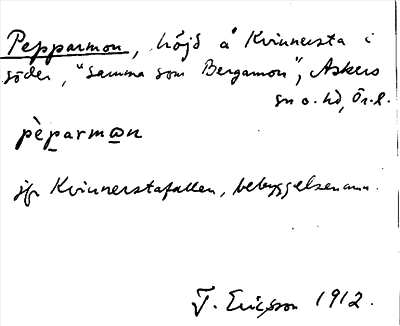 Pepparmon, höjd å Kvinnersta i
söder, "samma som Bergamon", Askers
sn o. hd, Ör. l.
pèparman
jfr Kvinnerstafallen, bebyggelsenamn.
T. Ericsson 1912.